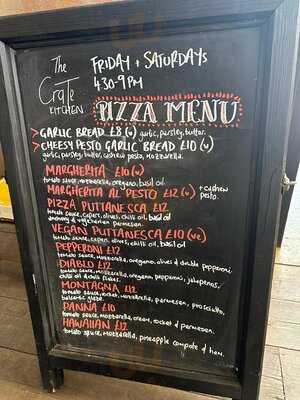 The
Crate
KITCHEN
FRIDAY + SATURDAYS
4.30-9PM
PIZZA MENU
> GARLIC BREAD £8 (v) garlic, parsley, butter.
> CHEESY PESTO GARLIC BREAD £10 (v)
garlic, parsley, butter, cashew pesto, mozzarella.
MARGHERITA £10 (v)
tomato sauce, mozzarella, oregano, basil oil
MARGHERITA AL PESTO £12 (v) + cashew
pesto.
PIZZA PUTTANESCA £12
tomato sauce, capers, olives, chilli oil, basil oil
anchovy & vegetarian parmesan.
VEGAN PUTTANESCA £10 (ve)
tomato sauce, capers, olives, chilli oil, basil oil
PEPPERONI £12
tomato sauce, mozzarella, oregano, olives & double pepperoni
DIABLO £12
tomato sauce, mozzarella, oregano, pepperoni, jalapenos,
chilli oil & chilli flakes.
MONTAGNA £12
tomato sauce, rocket, mozzarella, parmesan, prosciutto,
balsamic glaze
PANNA £10
tomato sauce, mozzarella, cream, rocket & parmesan.
HAWAIIAN £12
tomato sauce, mozzarella, pineapple compote & ham.